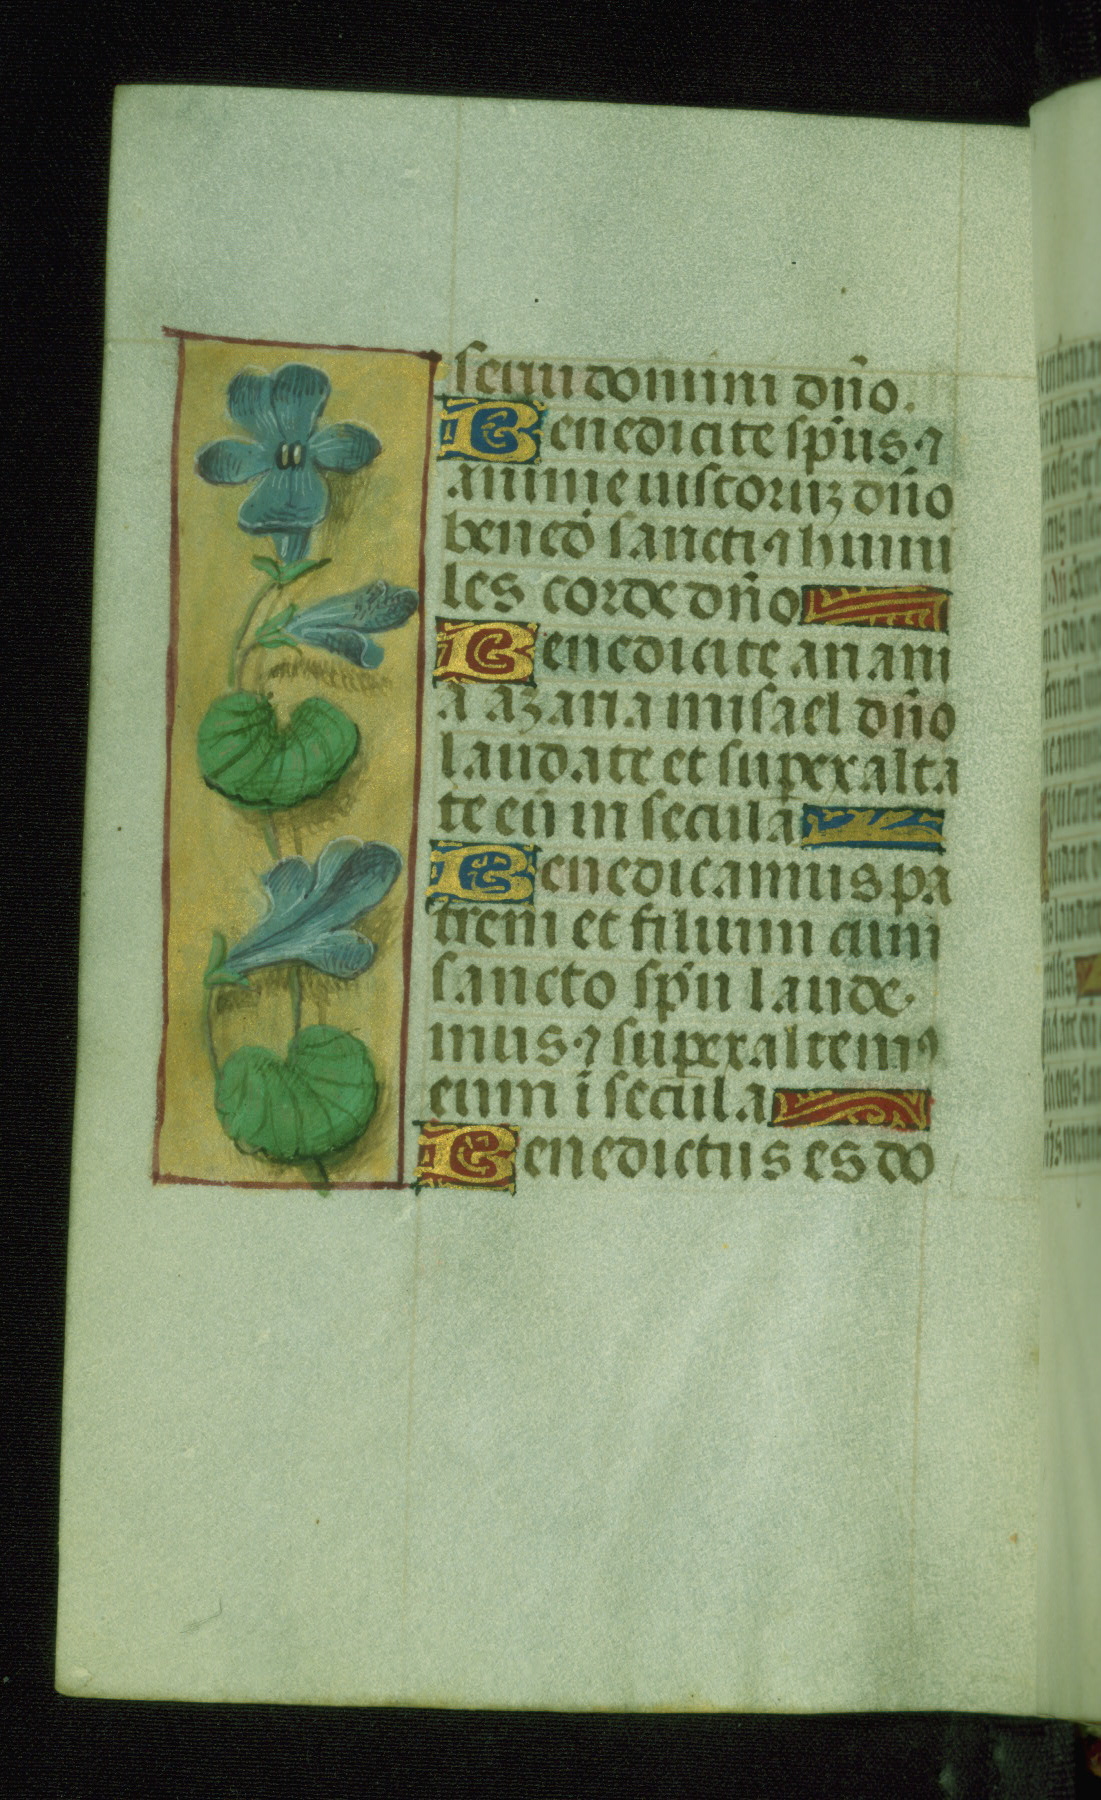 serui domini dño.
Benedicite sp̃us ⁊
anime iustoruꝫ dño
bened̃ sancti ⁊ humi
les corde dño
Benedicite anani
a azaria misael dño
laudate et superexalta
te eũ in secula
Benedicamus pa
trem et filium cum
sancto sp̃u laude
mus ⁊ superexaltemꝰ
eum ĩ secula
Benedictus es do